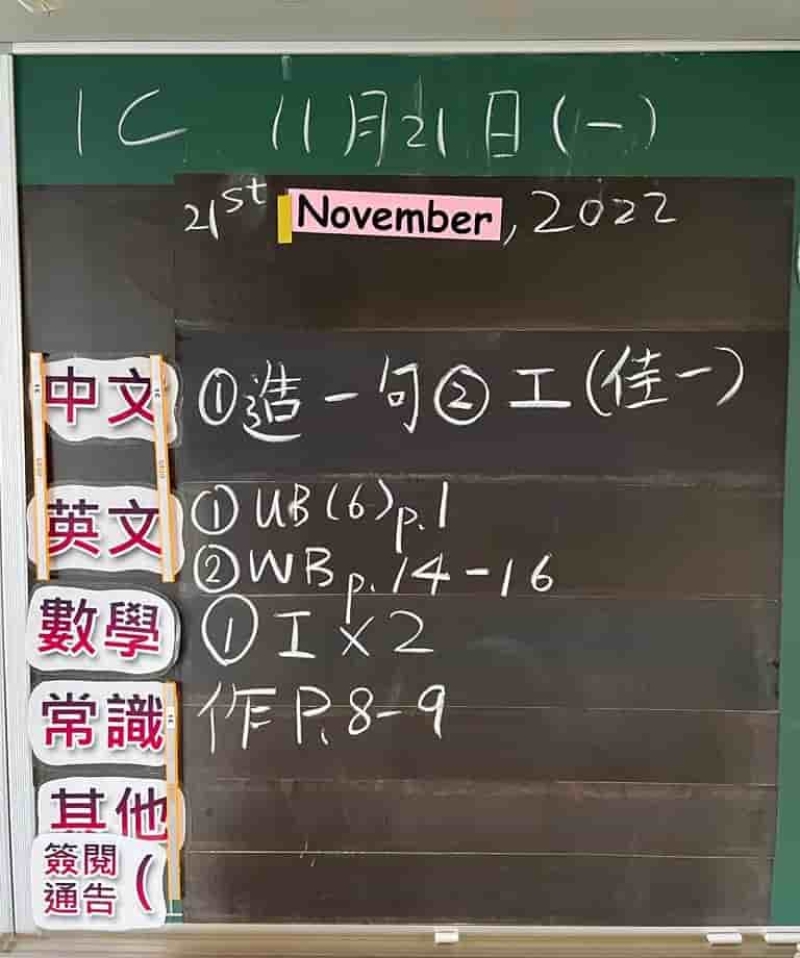 1C 11月21日(一)
21st November, 2022
中文 ①造一句②工(佳一)
英文 ①UB(6)p.1
②WB p.14-16
數學 ①工×2
常識 作P.8-9
其他
簽閱通告(